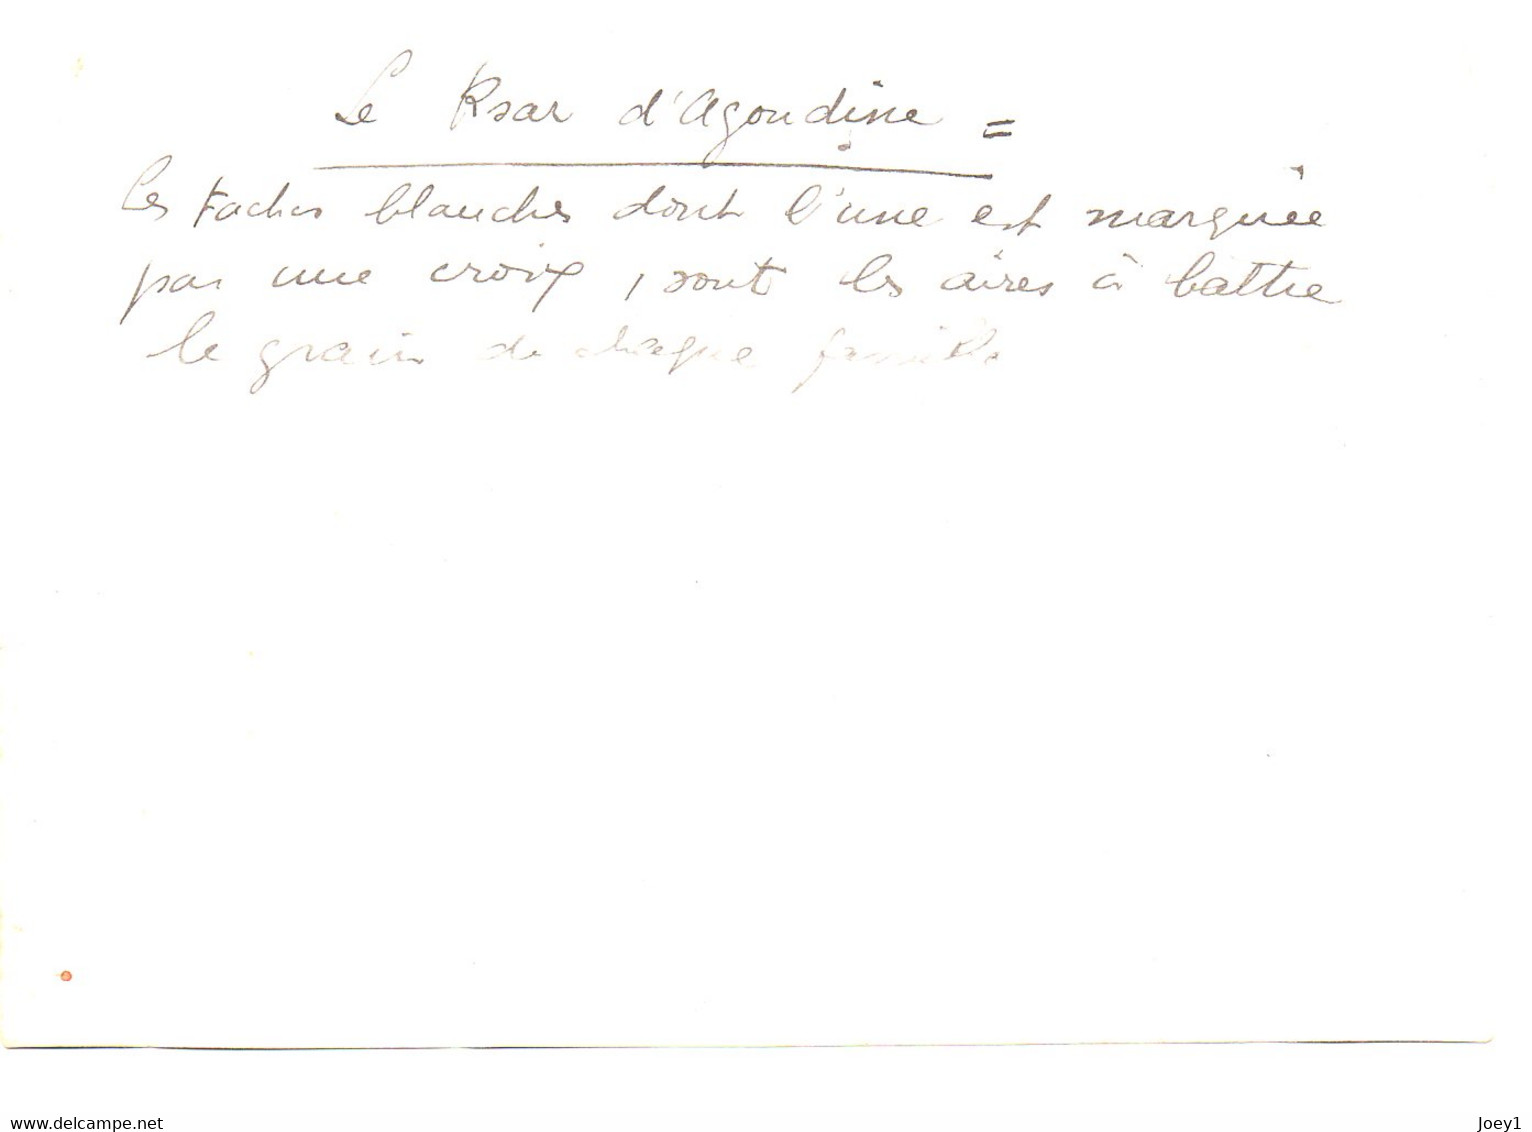 Le Ksar d'Agoudine =
Les taches blanches dont l'une est marquée
par une croix, sont les aires à battre
le grain de chaque famille
www.delcampe.net
Joey1